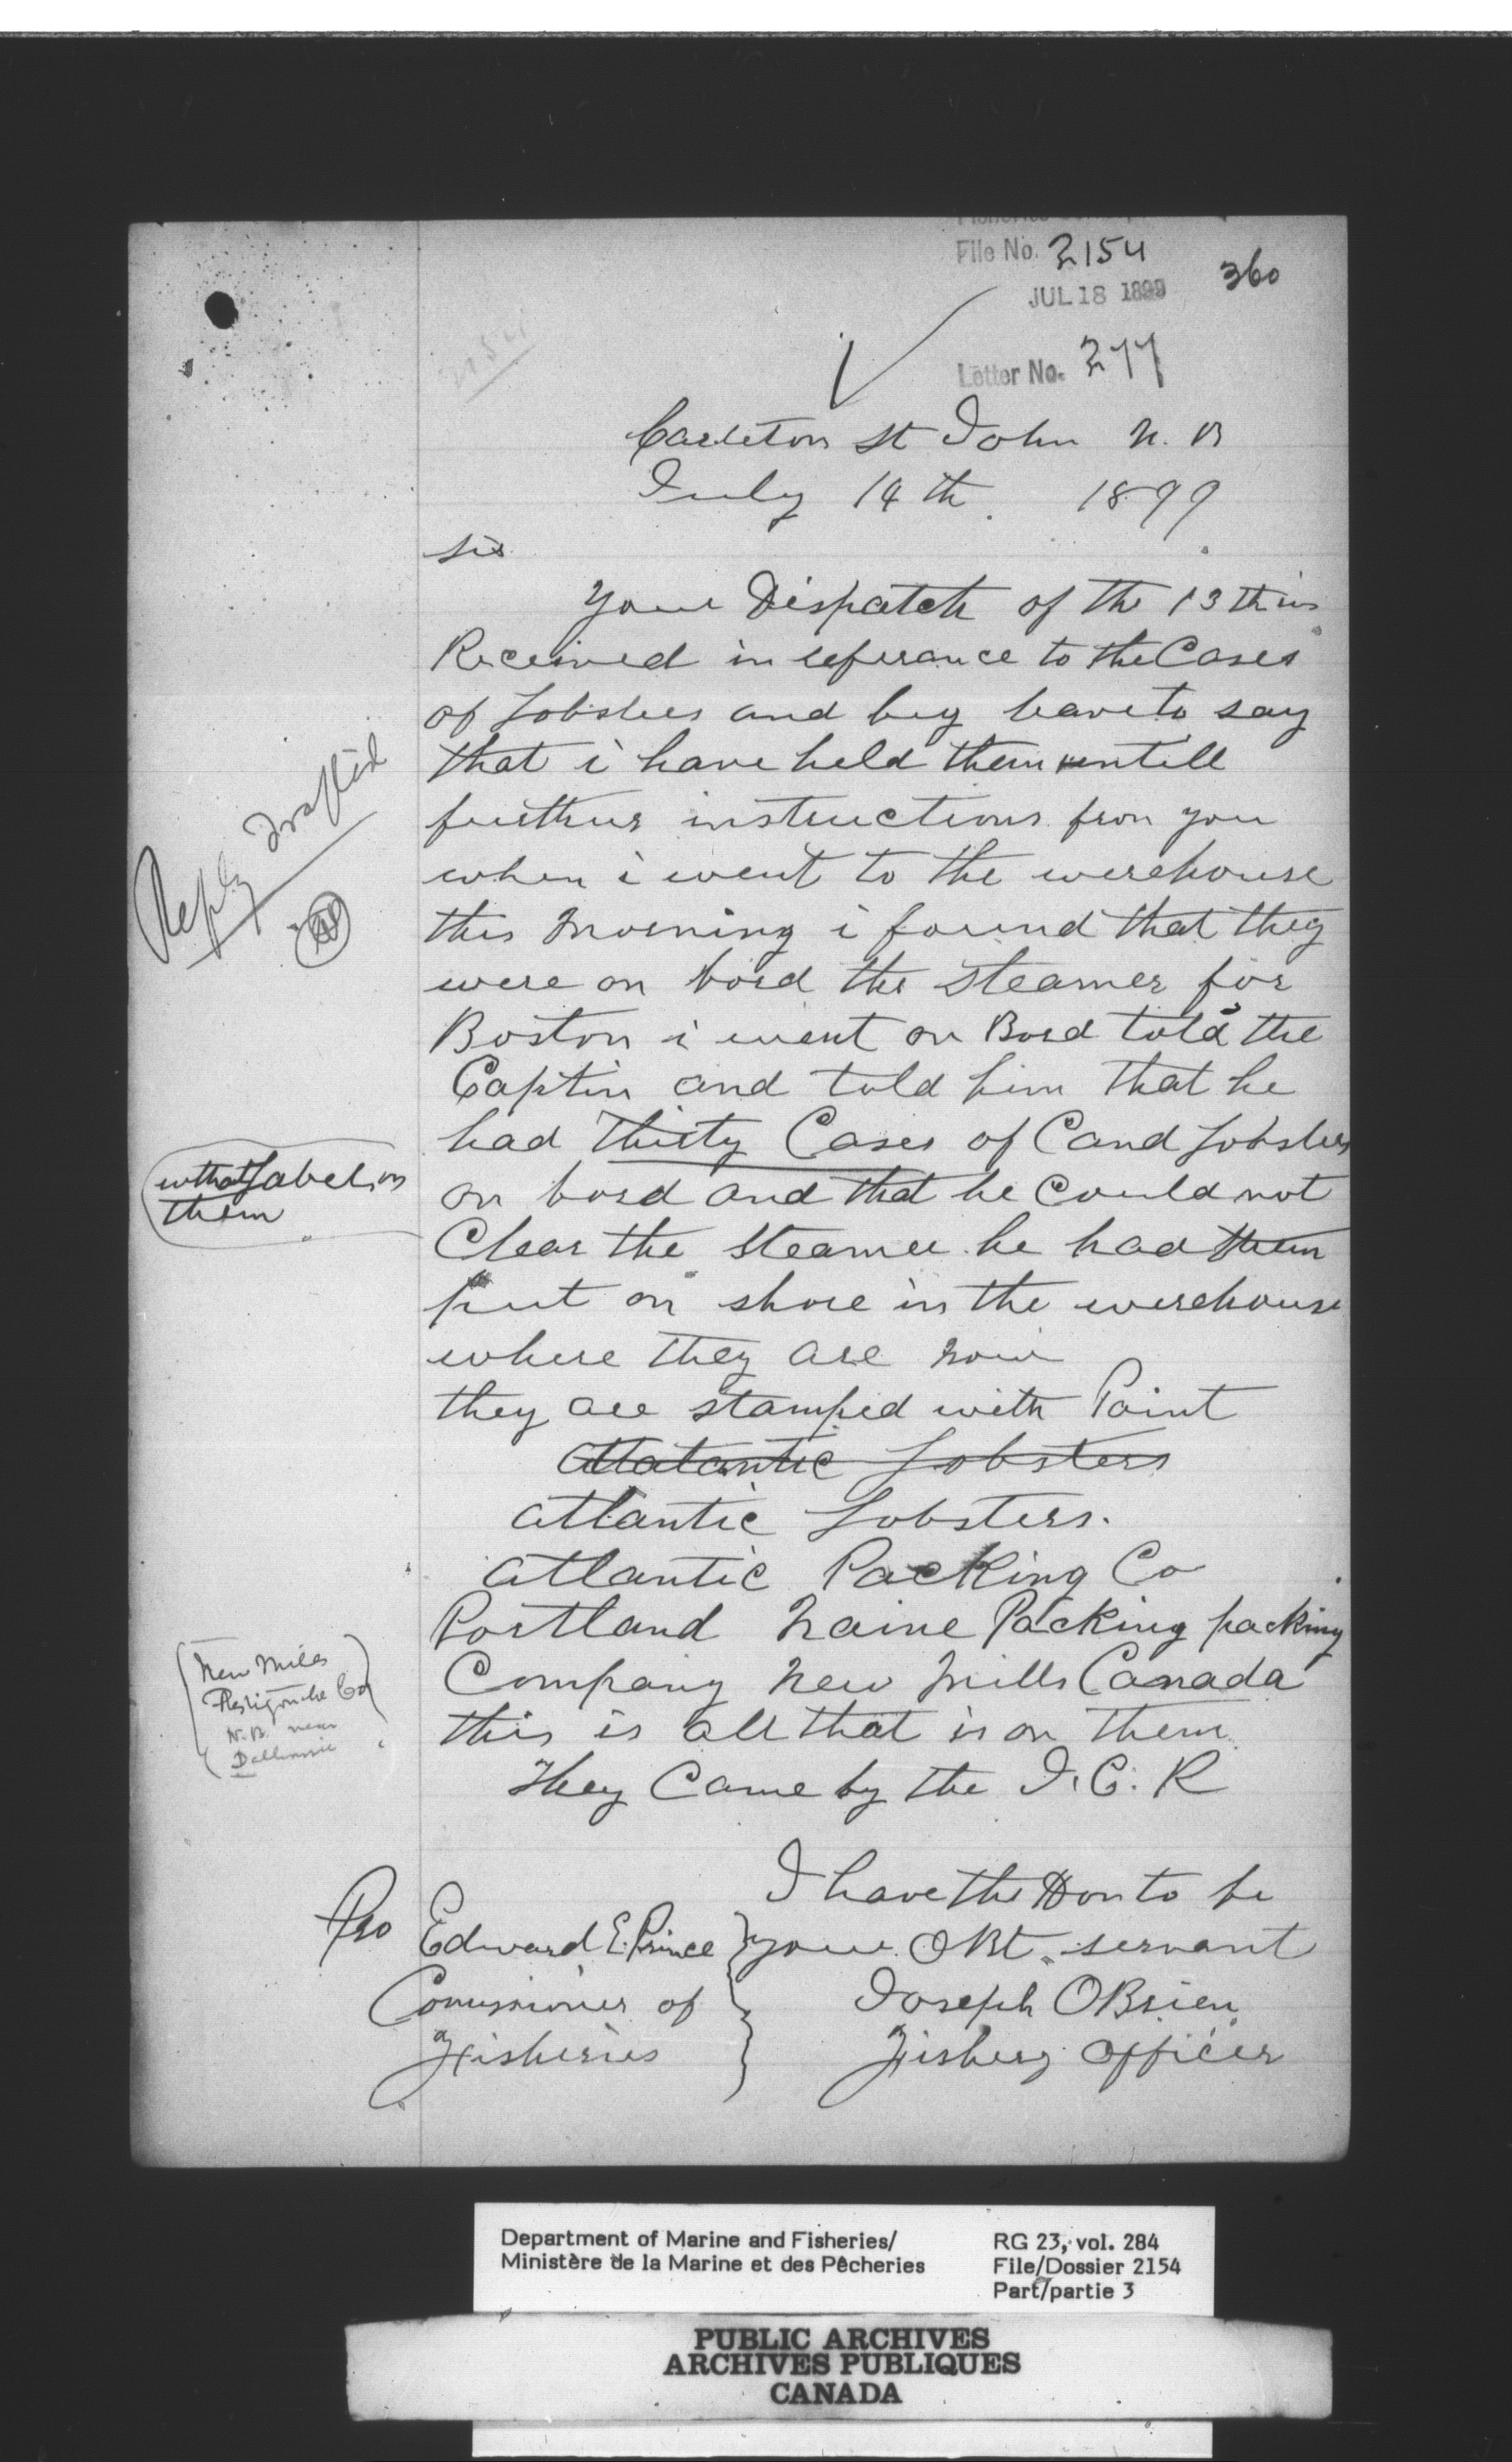 File No. 2154
360
JUL 18 1899
Letter No. 277
Carleton St John N. B
July 14th 1899
Sir
Your Dispatch of the 13th ins
Received in referance to the Cases
of Lobsters and beg leave to say
that i have held them untill
further instructions from you
when i went to the werehouse
this morning i found that they
were on bord the steamer for
Boston i went on Bord told the
Captin and told him that he
had Thirty Cases of Cand Lobsters
on bord and that he Could not
Clear the steamer he had them
put on shore in the werehouse
where they are now
they are stamped with Paint
Atatantic Lobsters
Atlantic Lobsters.
Atlantic Packing Co
Portland Maine Packing packing
Company New Mills Canada
this is all that is on them
They Came by the I. C. R
I have the Hon to be
your OBt. servant
Joseph OBrien
Fishery Officer
Pro Edward E. Prince
Comissioner of
Fisheries
Reply drafted
what Label on
them
New Mills
Restigouche Co
N.B. near
Dalhousie
Department of Marine and Fisheries/
Ministère de la Marine et des Pêcheries
RG 23, vol. 284
File/Dossier 2154
Part/partie 3
PUBLIC ARCHIVES
ARCHIVES PUBLIQUES
CANADA